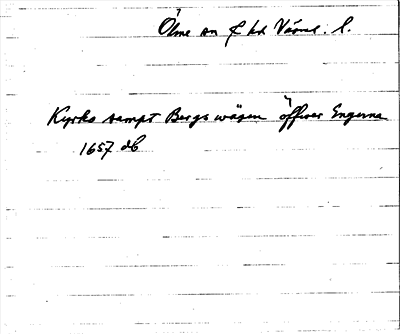 Ölme sn o hd Värml. l.
Kyrko sampt Bergs wägen öffwer Engerna
1657 db